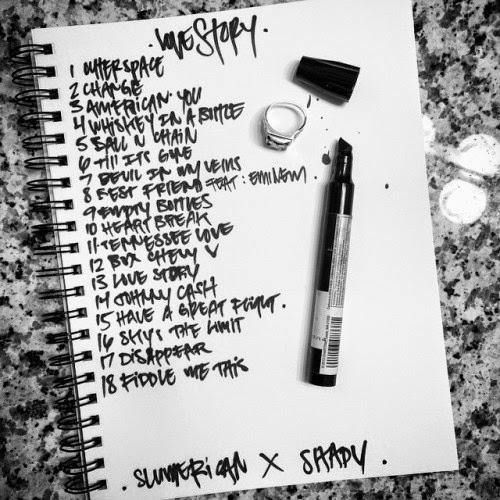 . LOVE STORY .
1 OUTERSPACE
2 CHANGE
3 AMERICAN YOU
4 WHISKEY IN A BOTTLE
5 BALL N CHAIN
6 TILL ITS GONE
7 DEVIL IN MY VEINS
8 BEST FRIEND FEAT: EMINEM
9 EMPTY BOTTLES
10 HEARTBREAK
11 TENNESSEE LOVE
12 BOX CHEVY V
13 LOVE STORY
14 JOHNNY CASH
15 HAVE A GREAT FLIGHT.
16 SKY'S THE LIMIT
17 DISAPPEAR
18 FIDDLE ME THIS
. SLUMERICAN X SHADY .